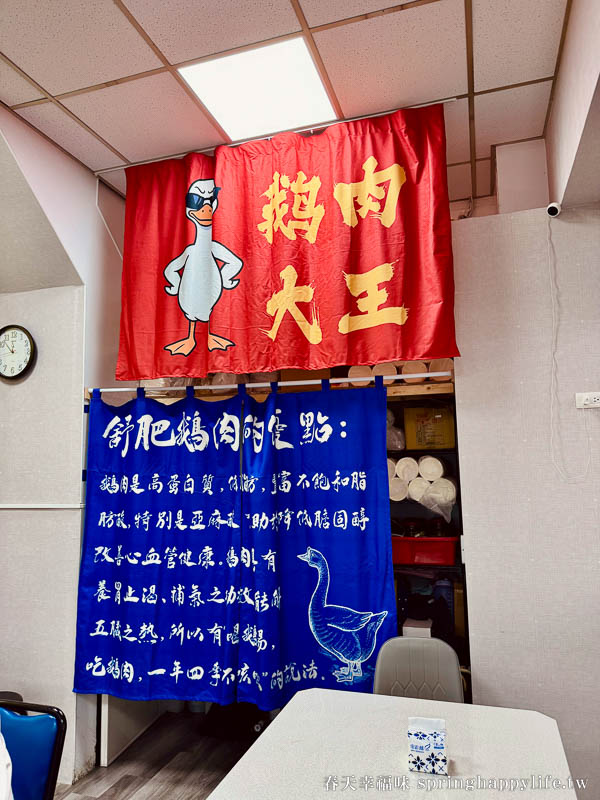 鵝肉
大王
舒肥鵝肉的優點：
鵝肉是高蛋白質，低脂肪，豐富不飽和脂
肪酸，特別是亞麻酸 助於降低膽固醇
改善心血管健康。鵝肉 有
養胃止渴、補氣之功效能解
五臟之熱，所以有喝鵝湯，
吃鵝肉，一年四季不咳嗽的說法．
春天幸福味 springhappylife.tw